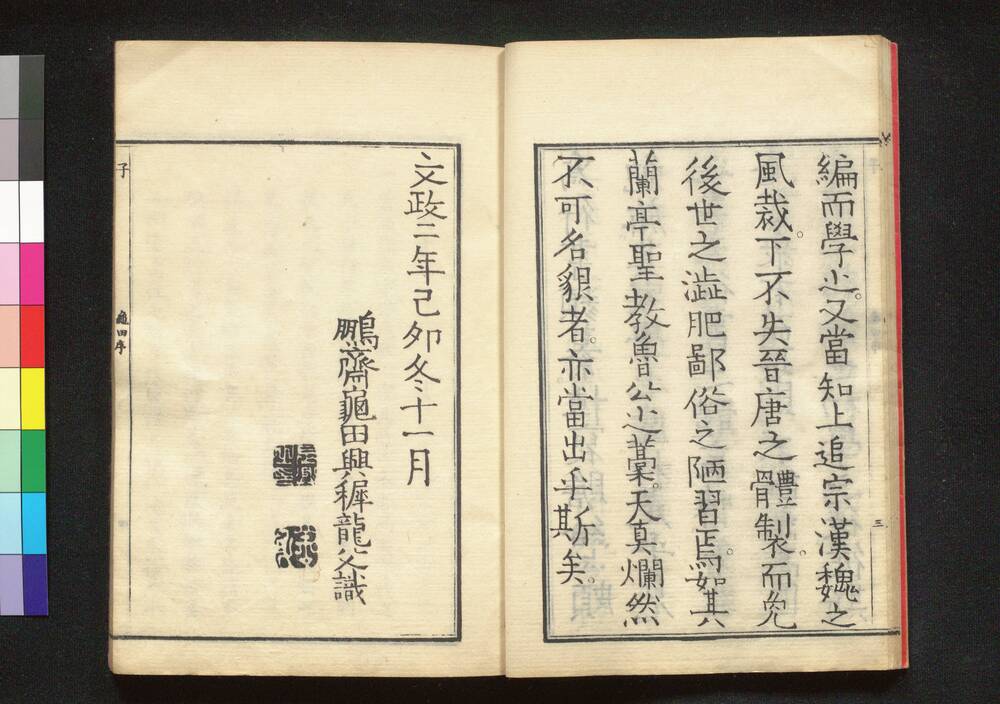 編而學之。又當知上追宗漢魏之
風裁。下不失晉唐之體製。而免
後世之澁肥鄙俗之陋習焉。如其
蘭亭聖教魯公之藁。天真爛然
不可名貌者。亦當出乎斯矣。
三
文政二年己卯冬十一月
鵬齋龜田興穉龍父識
子
龜田序